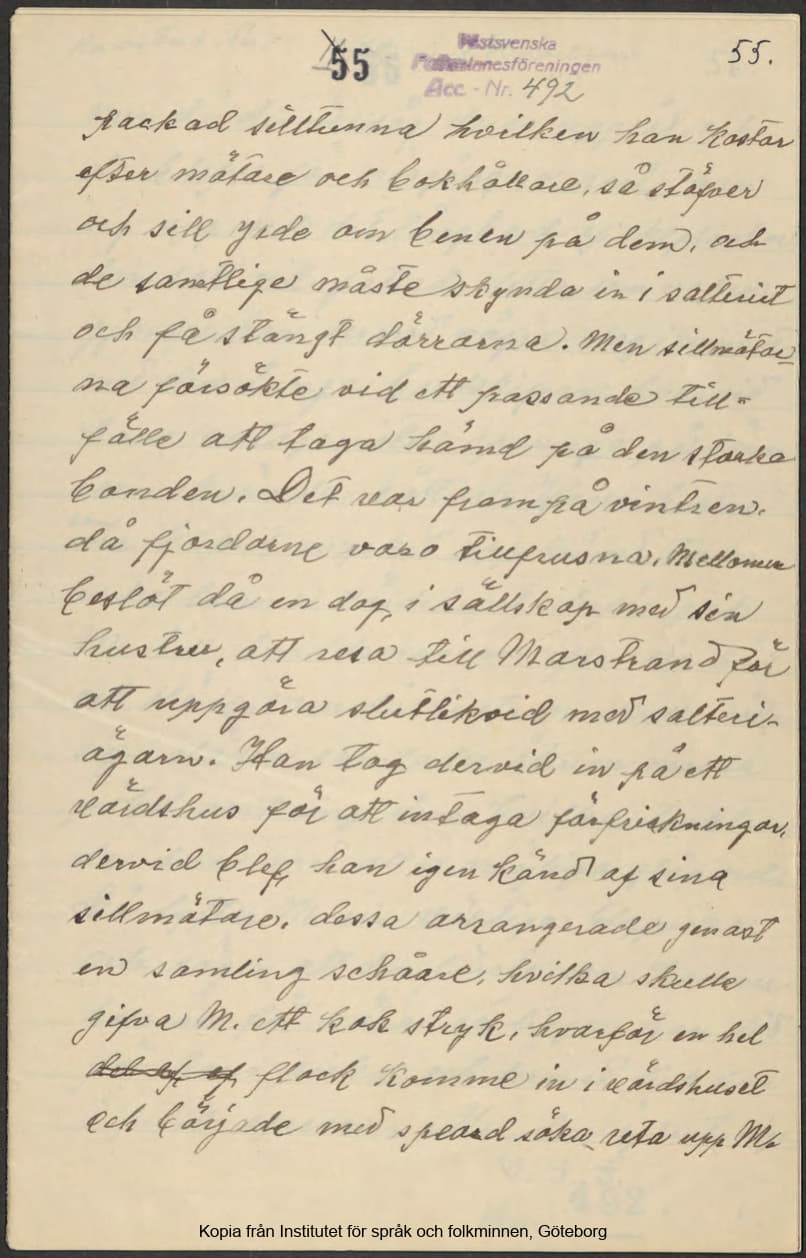 55
Västsvenska
Folkminnesföreningen
Acc - Nr. 492
55.
packad silltunna hvilken han kastar
efter mätare och bokhållare, så stäfver
och sill yrde om benen på dem, och
de samtlige måste skynda in i salteriet
och få stängt dörrarna. Men sillmätar-
na försökte vid ett passande till-
fälle att taga hämd på den starka
bonden. Det var frampå vintren.
då fjordarne voro tillfrusna. Mellomen
beslöt då en dag, i sällskap med sin
hustru, att resa till Marstrand för
att uppgöra slutlikvid med salteri-
ägarn. Han tog dervid in på ett
värdshus för att intaga förfriskningar,
dervid blef han igen känd af sina
sillmätare. dessa arrangerade genast
en samling schåare, hvilka skulle
gifva M. ett kok stryk, hvarför en hel
del af af flock komme in i värdshuset
och började med speord söka reta upp M.
Kopia från Institutet för språk och folkminnen, Göteborg